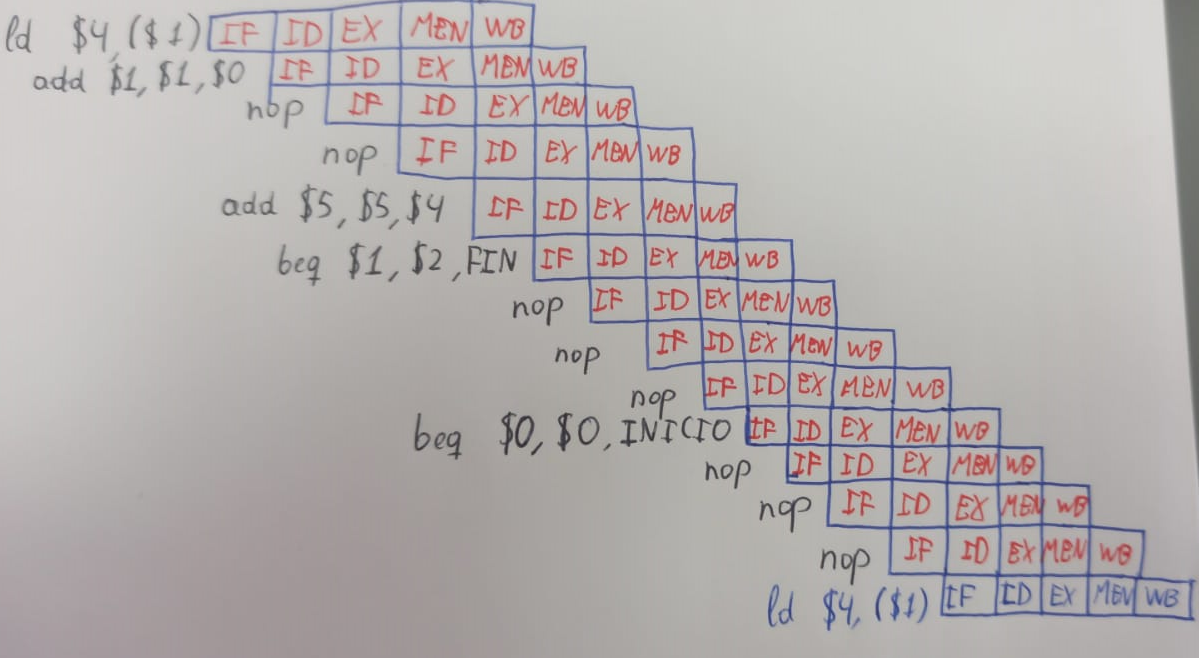 ld $4, ($1) IF ID EX MEN WB
add $1, $1, $0 IF ID EX MEN WB
nop IF ID EX MEN WB
nop IF ID EX MEN WB
add $5, $5, $4 IF ID EX MEN WB
beq $1, $2, FIN IF ID EX MEN WB
nop IF ID EX MEN WB
nop IF ID EX MEN WB
nop IF ID EX MEN WB
beq $0, $0, INICIO IF ID EX MEN WB
nop IF ID EX MEN WB
nop IF ID EX MEN WB
nop IF ID EX MEN WB
ld $4, ($1) IF ID EX MEN WB